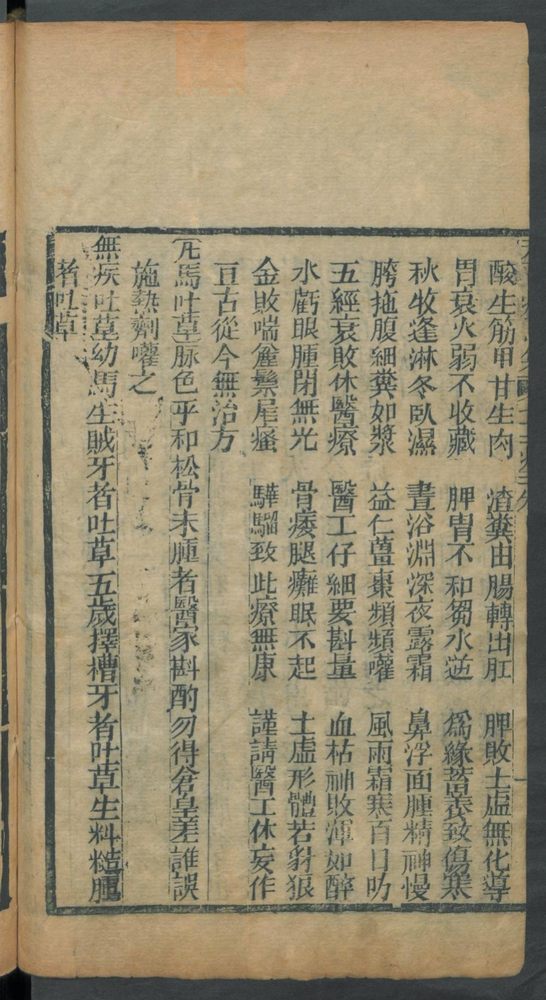 酸生筋甲甘生肉　渣糞由腸轉出肛　脾敗土虛無化導
胃衰火弱不收藏　脾胃不和芻水逆　爲緣蓄養致傷寒
秋牧逢淋冬臥濕　晝浴淵深夜露霜　鼻浮面腫精神慢
胯拖腹細糞如漿　益仁薑棗頻頻嚾　風雨霜寒百日叻
五經衰敗休醫療　醫工仔細要斟量　血枯神敗渾如醉
水虧眼腫閉無光　骨痿腿癱眠不起　土虛形體若豺狼
金敗喘 　驊騮致此療無康　謹請醫工休妄作
亘古從今無治方
凡馬吐草脉色平和松骨未腫者醫家斟酌勿得倉皇差誰誤
施熱劑嚾之
無疾吐草幼馬生賊牙者吐草五歲擇槽牙者吐草生料糙腫
者吐草